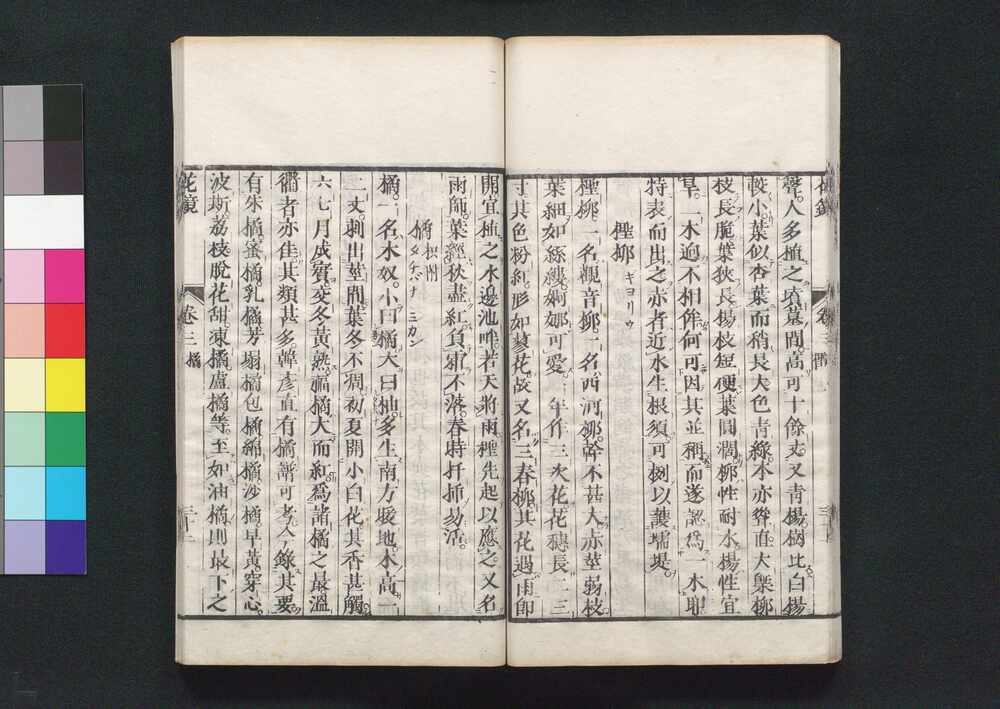 聲人多植之墳墓間高可十餘丈又青楊樹比白楊
較小葉似杏葉而稍長大色青綠木亦聳直大槩柳
枝長脆葉狹長楊枝短硬葉圓濶柳性耐水楊性宜
旱一木迥不相侔何可因其並稱而遂認爲一木耶
特表而出之赤者近水生根須可樹以護堤
檉柳 キヨリウ
檉柳一名觀音柳一名西河柳幹不甚大赤莖弱枝
葉細如絲縷婀娜可愛一年作三次花花穗長二三
寸其色粉紅形如蓼花故又名三春柳其花遇雨即
開宜植之水邊池畔若天將雨檉先起以應之又名
雨師葉經秋盡紅負霜不落春時扦插易活
橘 ミカン
橘一名木奴小曰橘大曰柚多生南方暖地木高一
二丈刺出莖間葉冬不凋初夏開小白花其香甚觸
六七月成實交冬黃熟福橘大而紅爲諸橘之最溫
衢者亦佳其類甚多韓彥直有橘譜可考今錄其要
有朱橘蜜橘乳橘芳塌橘包橘綿橘沙橘早黃穿心
波斯荔枝脫花甜凍橘盧橘等至如油橘則最下之
花鏡 卷三 橘